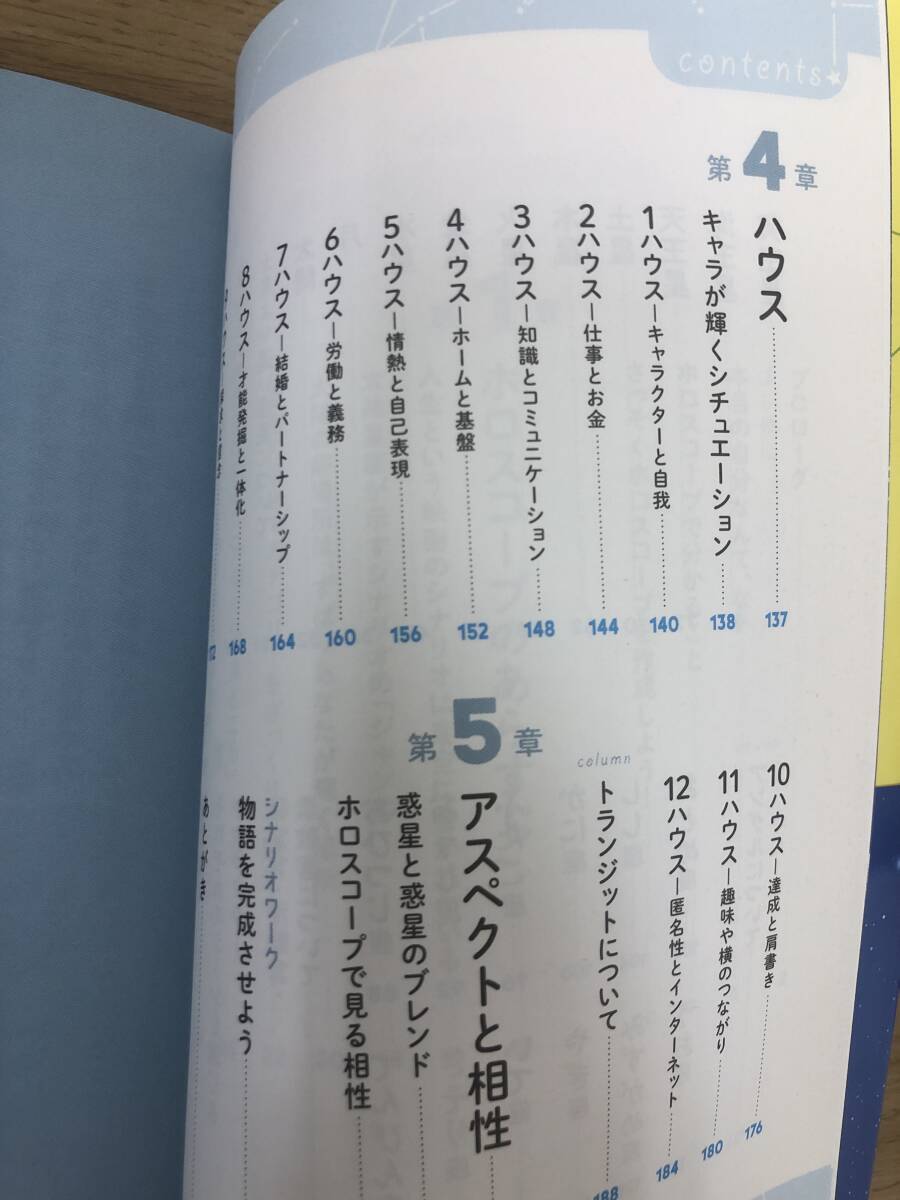 contents
第4章
ハウス 137
キャラが輝くシチュエーション 138
1ハウス―キャラクターと自我 140
2ハウス―仕事とお金 144
3ハウス―知識とコミュニケーション 148
4ハウス―ホームと基盤 152
5ハウス―情熱と自己表現 156
6ハウス―労働と義務 160
7ハウス―結婚とパートナーシップ 164
8ハウス―才能発掘と一体化 168
ハウス
10ハウス―達成と肩書き 176
11ハウス―趣味や横のつながり 180
12ハウス―匿名性とインターネット 184
column
トランジットについて 188
第5章
アスペクトと相性
惑星と惑星のブレンド
ホロスコープで見る相性
シナリオワーク
物語を完成させよう
あとがき